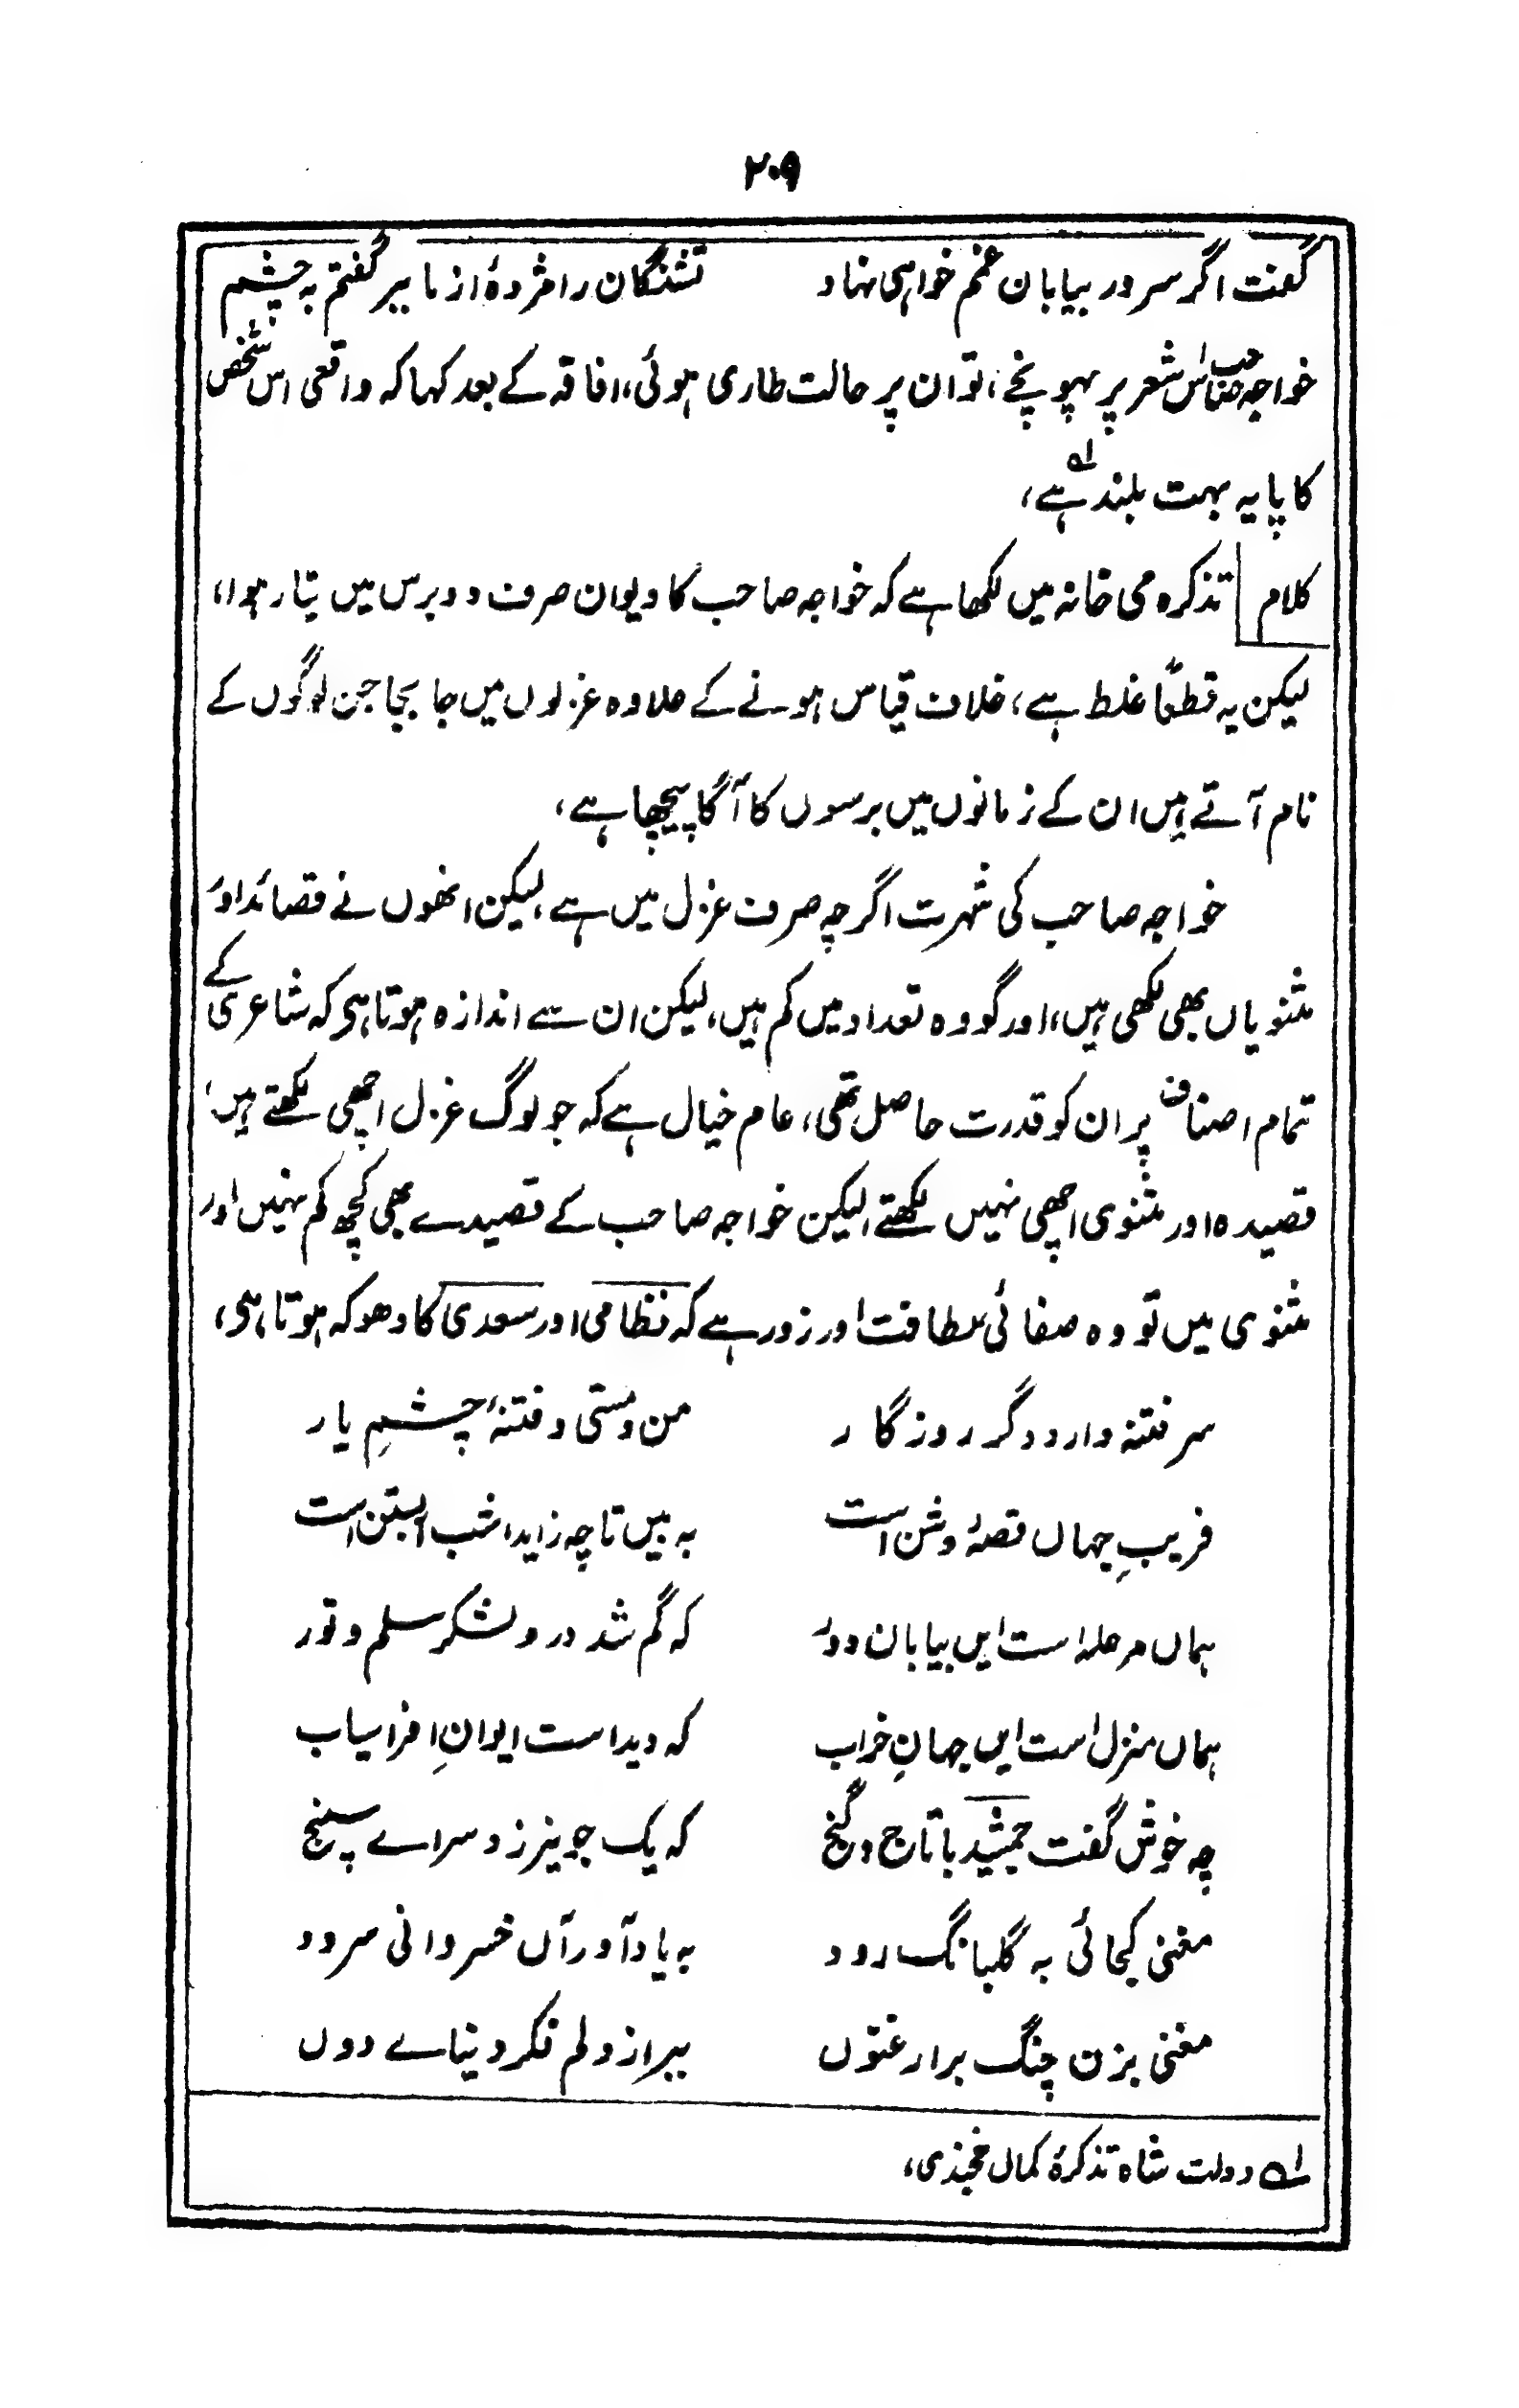 ۲۰۹
گفت اگر سر در بیابان غمم خواہی نہاد    تشنگان را مژدۂ از ما ببر گفتم بہ چشم
خواجہ صاحب اس شعر پر پہونچے، تو ان پر حالت طاری ہوئی، افاقہ کے بعد کہا کہ واقعی اس شخص
کا پایہ بہت بلند ہے لہ،
کلام تذکرہ می خانہ میں لکھا ہے کہ خواجہ صاحب کا دیوان صرف دو برس میں تیار ہوا،
لیکن یہ قطعاً غلط ہے، خلاف قیاس ہونے کے علاوہ غزلوں میں جا بجا جن لوگوں کے
نام آتے ہیں ان کے زمانوں میں برسوں کا آگا پیچھا ہے،
خواجہ صاحب کی شہرت اگرچہ صرف غزل میں ہے، لیکن انھوں نے قصائد اور
مثنویاں بھی لکھی ہیں، اور گو وہ تعداد میں کم ہیں، لیکن ان سے اندازہ ہوتا ہی کہ شاعری کے
تمام اصناف پر ان کو قدرت حاصل تھی، عام خیال ہے کہ جو لوگ غزل اچھی لکھتے ہیں،
قصیدہ اور مثنوی اچھی نہیں لکھتے، لیکن خواجہ صاحب کے قصیدے بھی کچھ کم نہیں اور
مثنوی میں تو وہ صفائی لطافت اور زور ہے کہ نظامی اور سعدی کا دھوکہ ہوتا ہی،
سر فتنہ دارد دگر روزگار    من و مستی و فتنۂ چشمِ یار
فریبِ جہاں قصۂ روشن است    بہ بیں تا چہ زاید، شب آبستن است
ہماں مرحلہ است ایں بیابان دور    کہ گم شد درو لشکر سلم و تور
ہماں منزل است ایں جہانِ خراب    کہ دید است ایوانِ افراسیاب
چہ خوش گفت جمشید با تاج و گنج    کہ یک جو نیرزد سراے سپنج
مغنی کجائی بہ گلبانگ رود    بہ یاد آور آں خسروانی سرود
مغنی بزن چنگ بر ارغنوں    ببر از دلم فکر دنیاے دوں
لہ دولت شاہ تذکرۂ کمال خجندی،